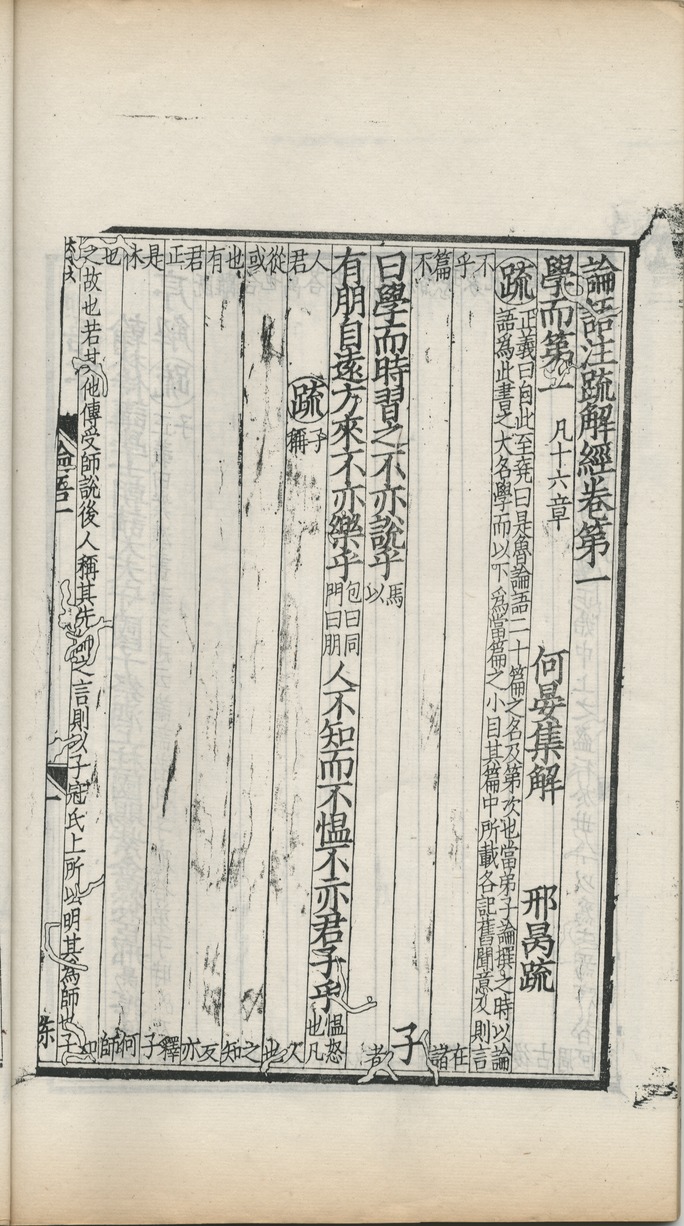 論語注疏解經卷第一
學而第一 凡十六章 何晏集解 邢昺疏
疏 正義曰自此至堯曰是魯論語二十篇之名及第次也當弟子論撰之時以論
語爲此書之大名學而以下爲當篇之小目其篇中所載各記舊聞意及則言
不 在
乎 諸
篇
不 者 子
曰學而時習之不亦說乎 馬
以
有朋自遠方來不亦樂乎 包曰同
門曰朋 人不知而不慍不亦君子乎 慍怒
也凡
人 疏 子
君 稱
從 也
或 之
也 知
有
君 亦
正 釋
是 子
休 何
也 師
之故也若其他傳受師說後人稱其先師之言則以子冠氏上所以明其爲師也子